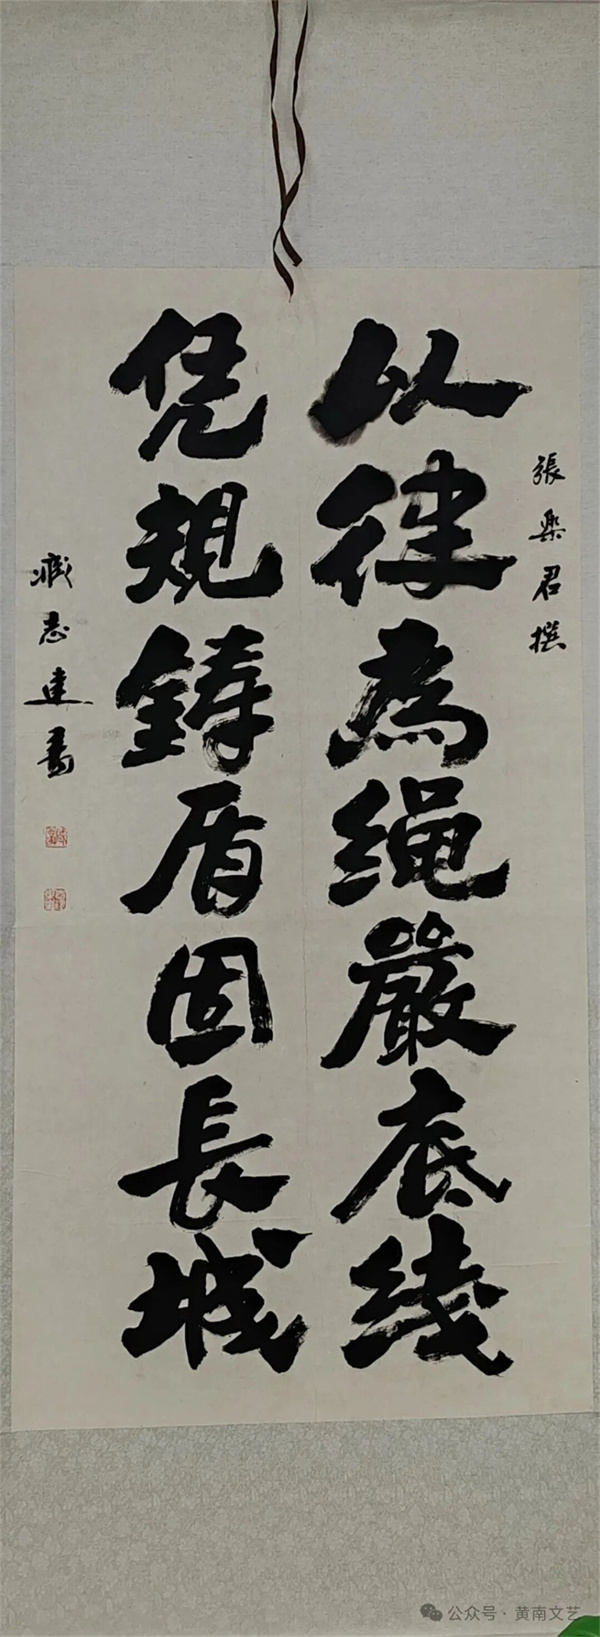 張樂君撰
以律為绳嚴底綫
凭規鑄盾固長城
臧志建書
公众号·黄南文艺